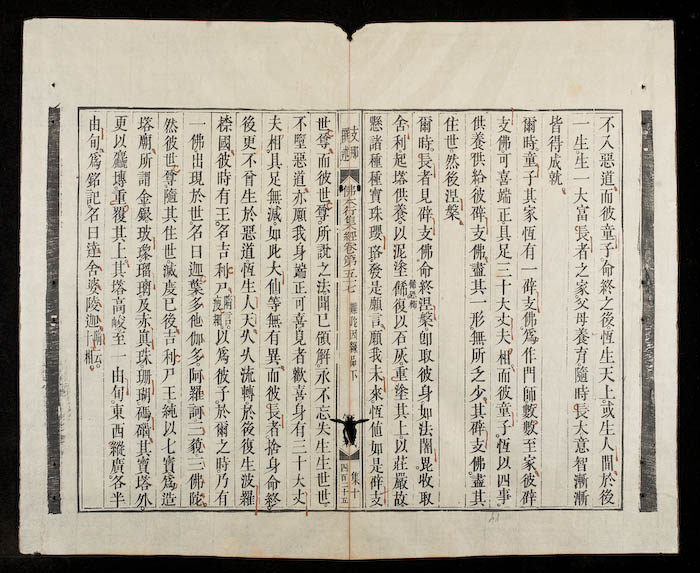 不入惡道而彼童子命終之後恆生天上或生人間於後
一生生一大富長者之家父母養育隨時長大意智漸漸
皆得成就
爾時童子其家恆有一辟支佛爲作門師數數至家彼辟
支佛可喜端正具足三十大丈夫相而彼童子恆以四事
供養供給彼辟支佛盡其一形無所乏少其辟支佛盡其
住世然後涅槃
爾時長者見辟支佛命終涅槃卽取彼身如法闍毘收取
舍利起塔供養以泥塗飾復以石灰重塗其上以莊嚴故
懸諸種種寶珠瓔珞發是願言願我未來恆値如是辟支
支那
撰述
佛本行集經卷第五七
難陀因緣品下
集十
四百二十五
世尊而彼世尊所說之法聞已領解永不忘失生生世世
不墮惡道亦願我身端正可喜見者歡喜身有三十大丈
夫相具足無減如此大仙等無有異而彼長者捨身命終
後更不曾生於惡道恆生人天久久流轉於後復生波羅
㮈國彼時有王名吉利尸隋言瘦細以爲彼子於爾之時乃有
一佛出現於世名曰迦葉多他伽多阿羅訶三藐三佛陀
然彼世尊隨其住世滅度已後吉利尸王純以七寶爲造
塔廟所謂金銀玻瓈瑠璃及赤眞珠珊瑚碼碯其寶塔外
更以甎塼重覆其上其塔高峻至一由旬東西縱廣各半
由旬爲銘記名曰達舍婆陵迦隋云十相